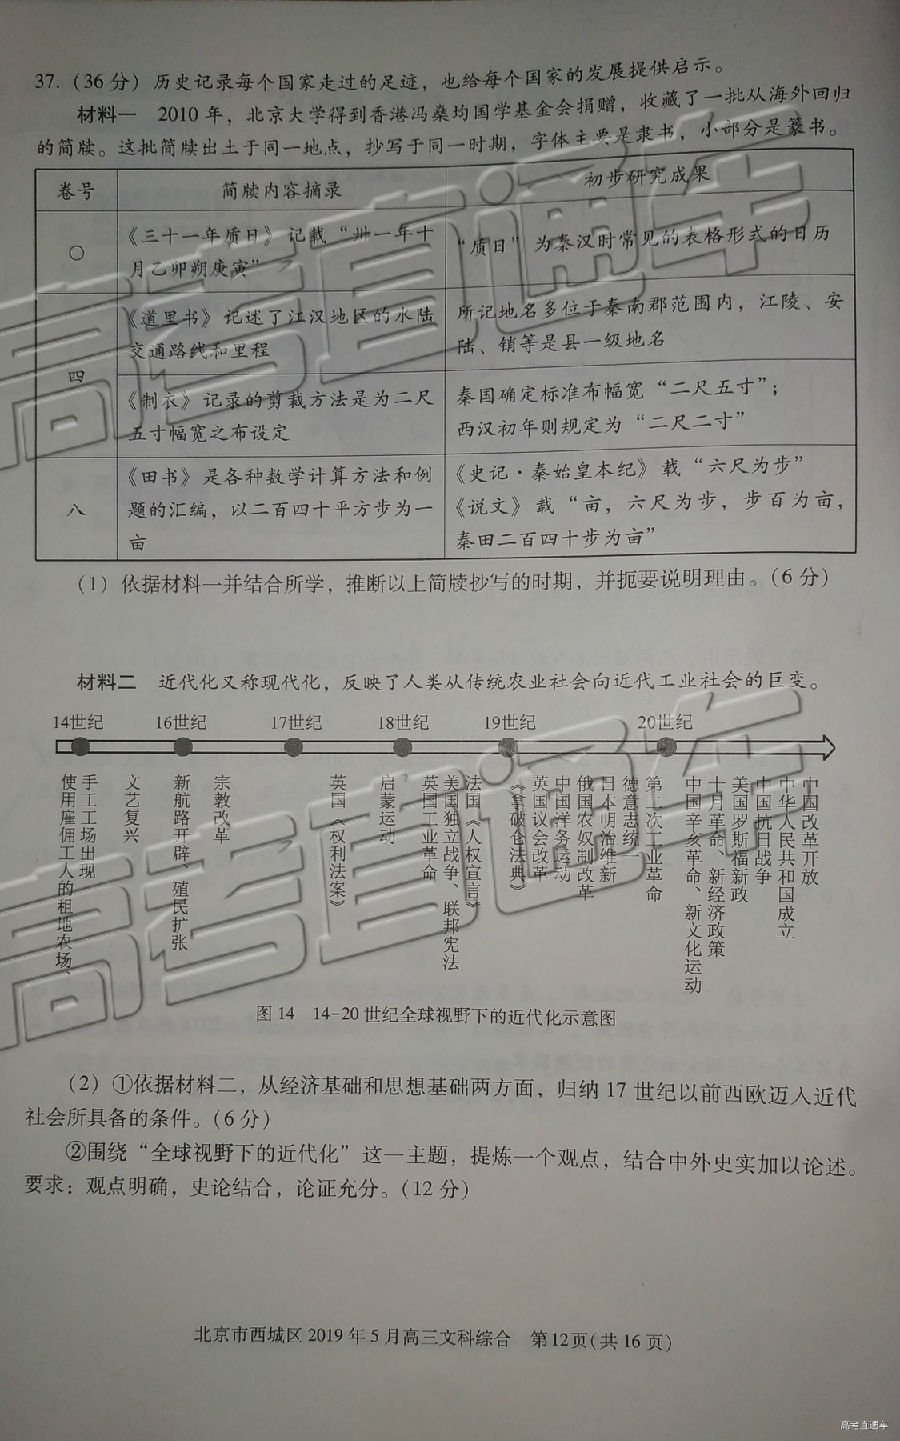 37.(36分)历史记录每个国家走过的足迹，也给每个国家的发展提供启示。
材料一 2010年，北京大学得到香港冯燊均国学基金会捐赠，收藏了一批从海外回归
的简牍。这批简牍出土于同一地点，抄写于同一时期，字体主要是隶书，小部分是篆书。
卷号 简牍内容摘录 初步研究成果
〇
《三十一年质日》记载“卅一年十
月乙卯朔庚寅”
“质日”为秦汉时常见的表格形式的日历
四
《道里书》记述了江汉地区的水陆
交通路线和里程
所记地名多位于秦南郡范围内，江陵、安
陆、销等是县一级地名
《制衣》记录的剪裁方法是为二尺
五寸幅宽之布设定
秦国确定标准布幅宽“二尺五寸”；
西汉初年则规定为“二尺二寸”
八
《田书》是各种数学计算方法和例
题的汇编，以二百四十平方步为一
亩
《史记·秦始皇本纪》载“六尺为步”
《说文》载“亩，六尺为步，步百为亩，
秦田二百四十步为亩”
(1)依据材料一并结合所学，推断以上简牍抄写的时期，并扼要说明理由。(6分)
材料二 近代化又称现代化，反映了人类从传统农业社会向近代工业社会的巨变。
14世纪 16世纪 17世纪 18世纪 19世纪 20世纪
使用雇佣工人的租地农场、
手工工场出现
文艺复兴
新航路开辟、殖民扩张
宗教改革
英国《权利法案》
启蒙运动
英国工业革命
美国独立战争、联邦宪法
法国《人权宣言》
《拿破仑法典》
英国议会改革
中国洋务运动
俄国农奴制改革
日本明治维新
德意志统一
第二次工业革命
中国辛亥革命、新文化运动
十月革命、新经济政策
美国罗斯福新政
中国抗日战争
中华人民共和国成立
中国改革开放
图14 14-20世纪全球视野下的近代化示意图
(2)①依据材料二，从经济基础和思想基础两方面，归纳17世纪以前西欧迈入近代
社会所具备的条件。(6分)
②围绕“全球视野下的近代化”这一主题，提炼一个观点，结合中外史实加以论述。
要求：观点明确，史论结合，论证充分。(12分)
北京市西城区2019年5月高三文科综合 第12页(共16页)
高考直通车
高考直通车
高考直通车